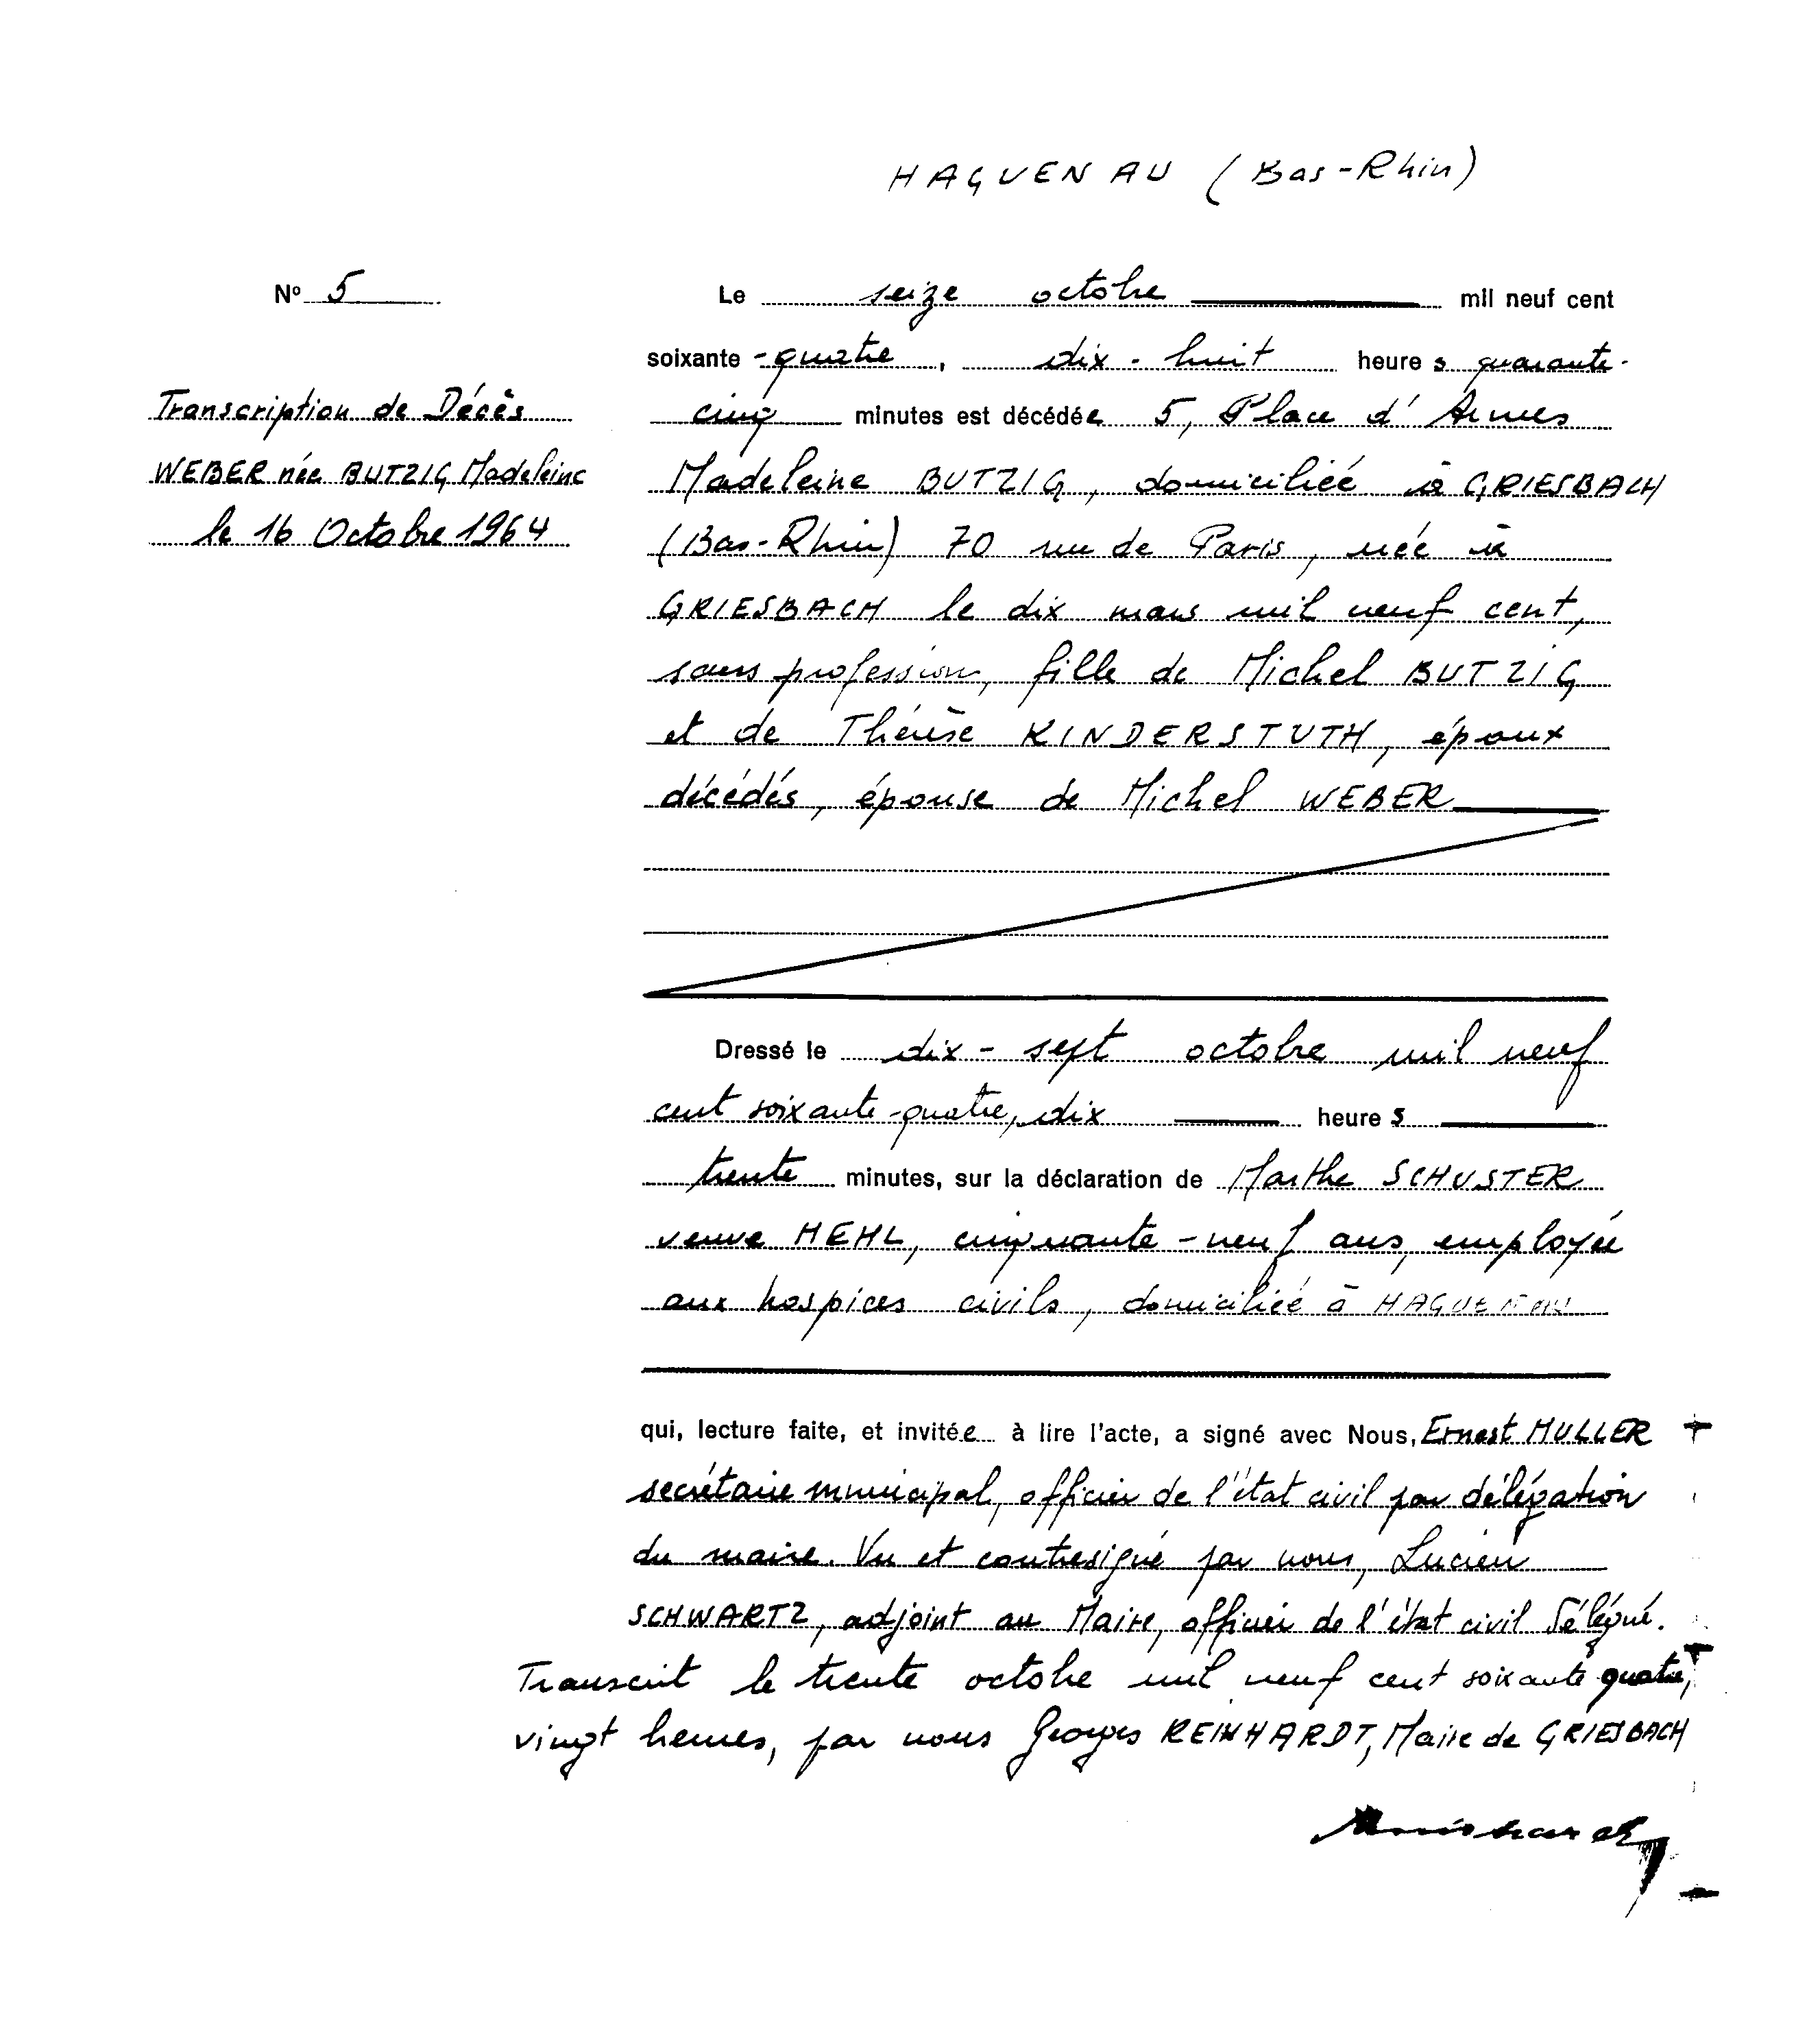 HAGUENAU (Bas-Rhin)
Nº 5
Transcription de Décès
WEBER née BUTZIG Madeleine
le 16 Octobre 1964
Le seize octobre mil neuf cent
soixante-quatre, dix-huit heures quarante-
cinq minutes est décédée 5, Place d'Armes
Madeleine BUTZIG, domiciliée à GRIESBACH
(Bas-Rhin) 70 rue de Paris, née à
GRIESBACH le dix mars mil neuf cent,
sans profession, fille de Michel BUTZIG
et de Thérèse KINDERSTUTH, époux
décédés, épouse de Michel WEBER
Dressé le dix-sept octobre mil neuf
cent soixante-quatre, dix heures
trente minutes, sur la déclaration de Marthe SCHUSTER
veuve HEHL, cinquante-neuf ans, employée
aux hospices civils, domiciliée à HAGUENAU
qui, lecture faite, et invitée à lire l'acte, a signé avec Nous, Ernest MULLER
secrétaire municipal, officier de l'état civil par délégation
du maire. Vu et contresigné par nous, Lucien
SCHWARTZ, adjoint au Maire, officier de l'état civil délégué.
Transcrit le trente octobre mil neuf cent soixante quatre,
vingt heures, par nous Georges REINHARDT, Maire de GRIESBACH